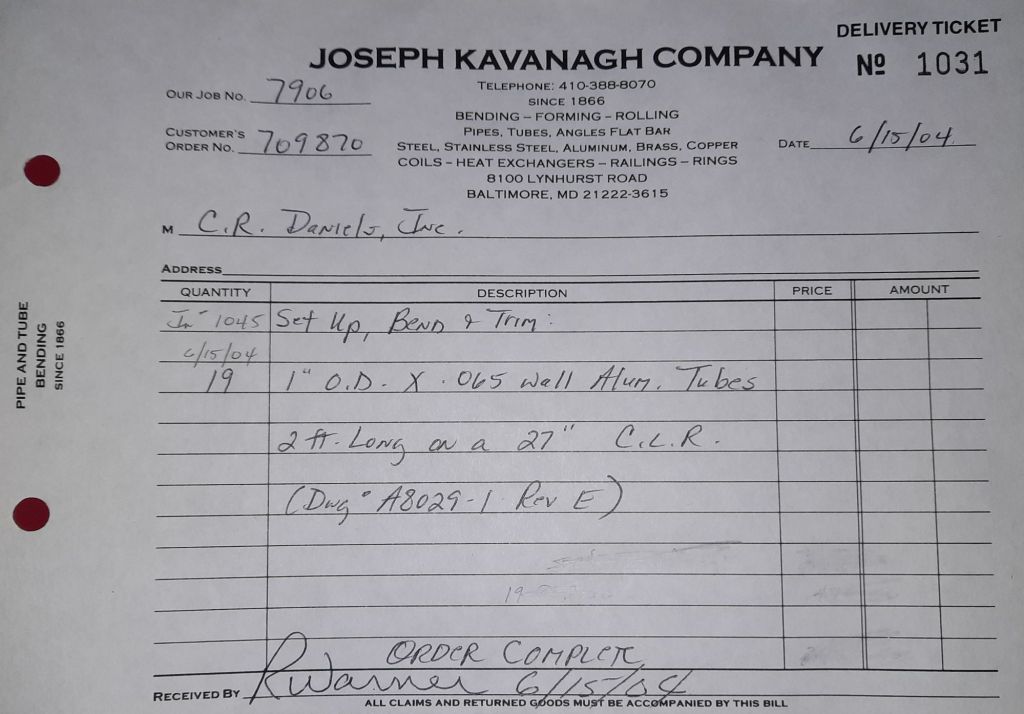 DELIVERY TICKET
JOSEPH KAVANAGH COMPANY
Nº 1031
TELEPHONE: 410-388-8070
OUR JOB NO. 7906
SINCE 1866
BENDING – FORMING – ROLLING
PIPES, TUBES, ANGLES FLAT BAR
CUSTOMER'S
ORDER NO. 709870
STEEL, STAINLESS STEEL, ALUMINUM, BRASS, COPPER
DATE 6/15/04
COILS – HEAT EXCHANGERS – RAILINGS – RINGS
8100 LYNHURST ROAD
BALTIMORE, MD 21222-3615
M C.R. Daniels, Inc.
ADDRESS
QUANTITY DESCRIPTION PRICE AMOUNT
1045 Set Up, Bend & Trim:
6/15/04
19 1" O.D. X .065 wall Alum. Tubes
2 ft. Long on a 27" C.L.R.
(Dwg A8029-1 Rev E)
19
ORDER COMPLETE
RECEIVED BY RWarner 6/15/04
ALL CLAIMS AND RETURNED GOODS MUST BE ACCOMPANIED BY THIS BILL
PIPE AND TUBE
BENDING
SINCE 1866